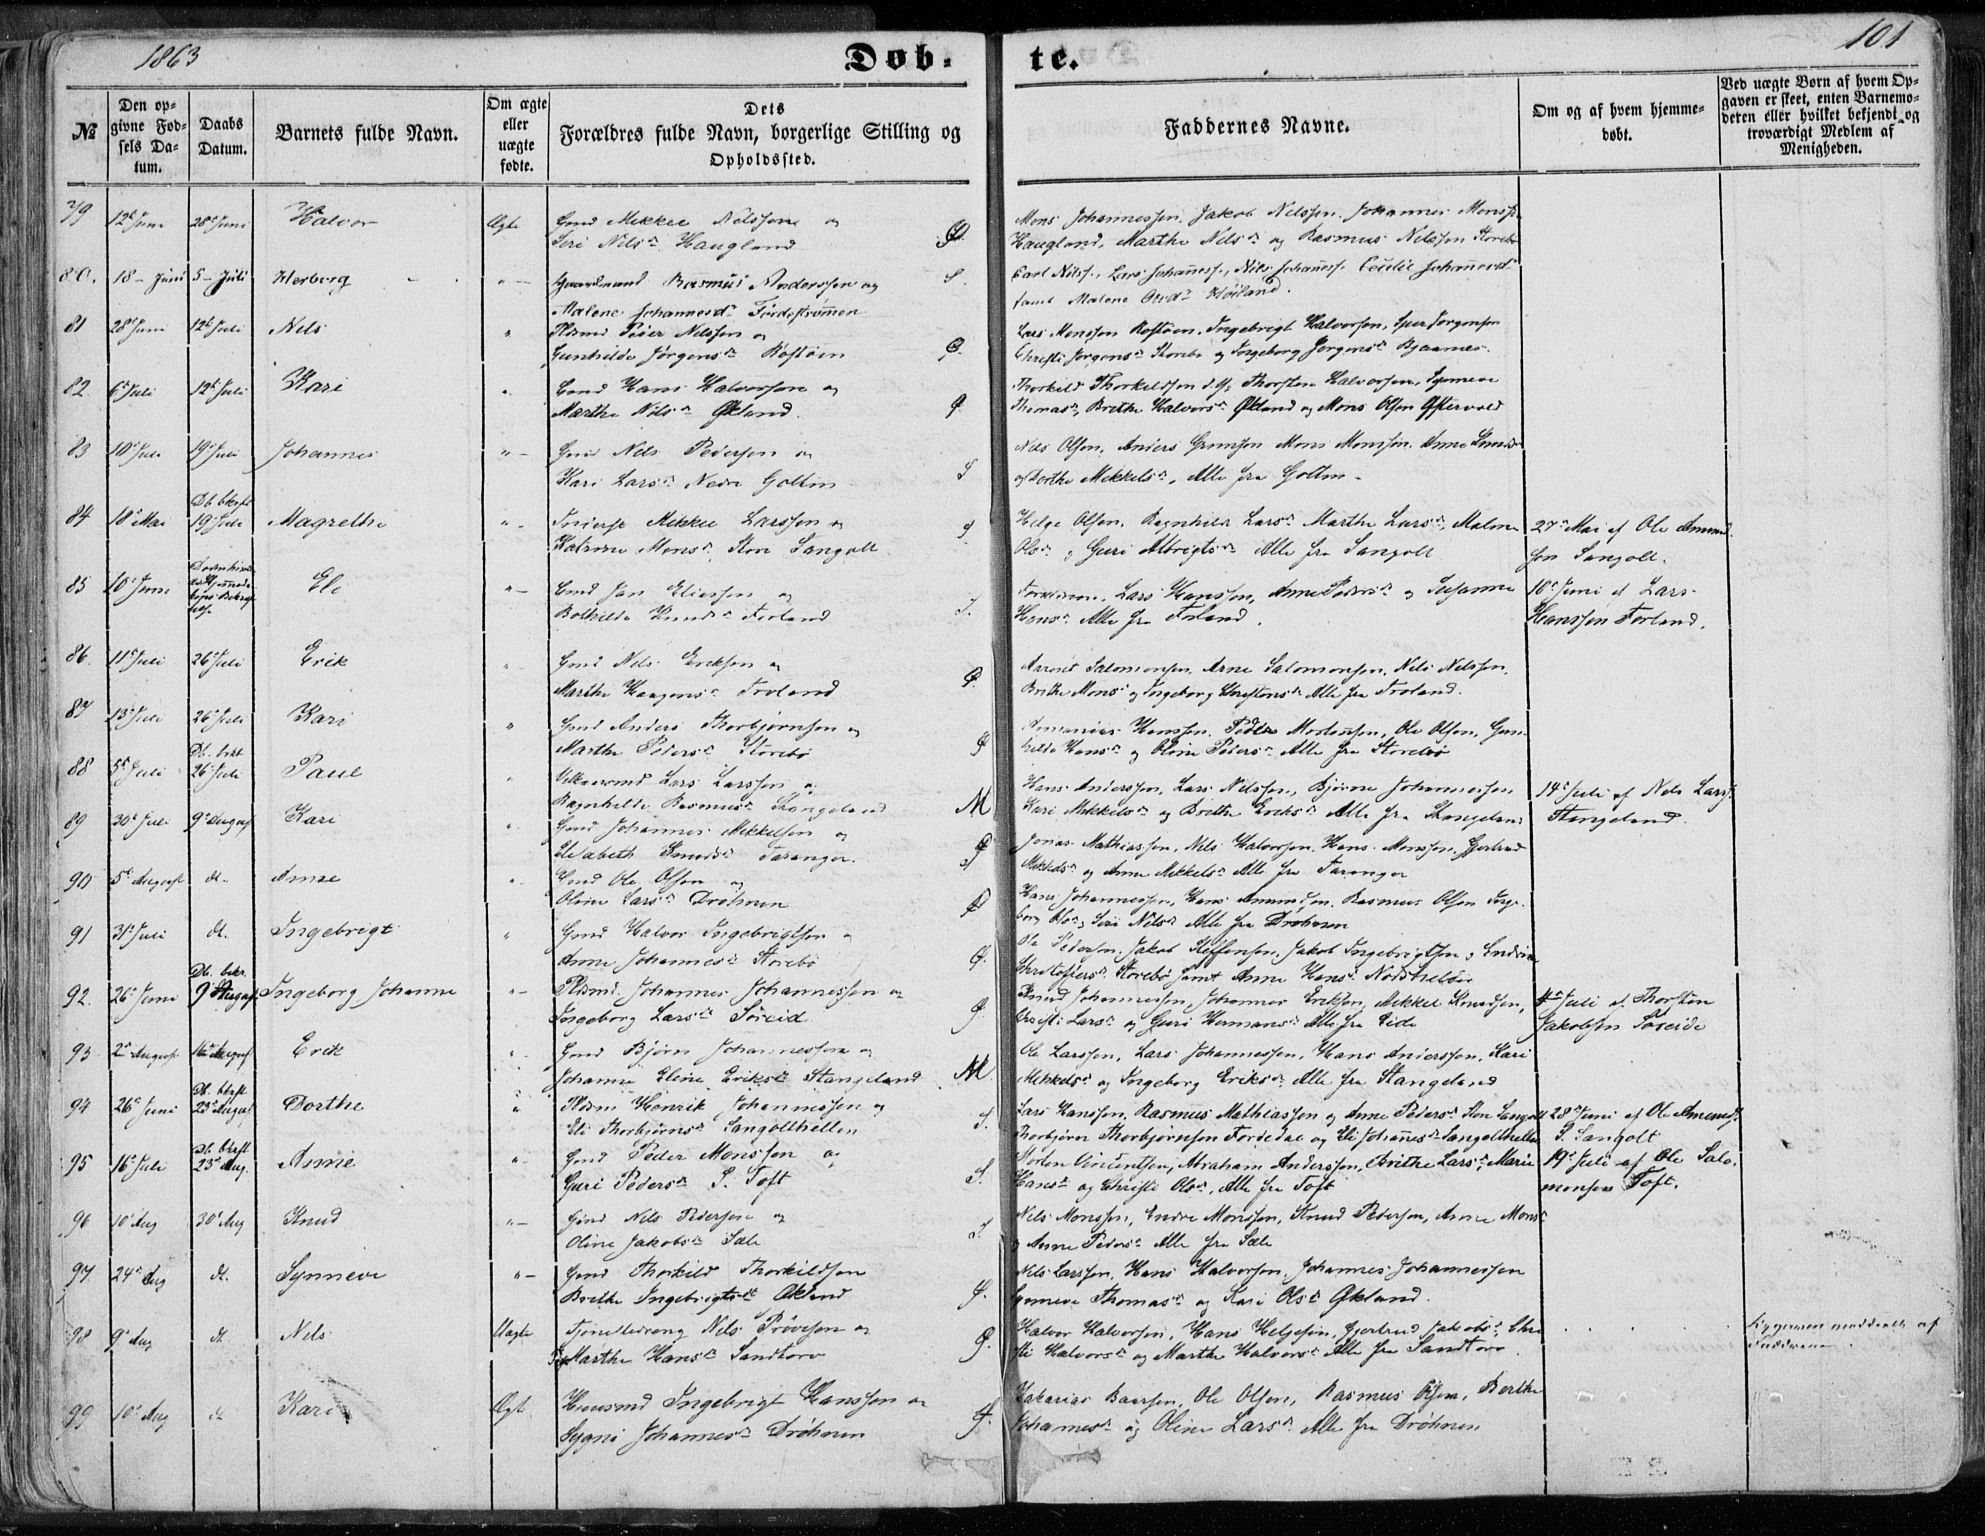 1863
Døb-
te.
101
№
Den op-
givne Fød-
sels Da-
tum.
Daabs
Datum.
Barnets fulde Navn.
Om ægte
eller
uægte
fødte.
Dets
Forældres fulde Navn, borgerlige Stilling og
Opholdssted.
Faddernes Navne.
Om og af hvem hjemme-
døbt.
Ved uægte Børn af hvem Op-
gaven er skeet, enten Barnemo-
deren eller hvilket bekjendt og
troværdigt Medlem af
Menigheden.
79 12te Juni 28de Juni Halvor Ægte Gmd Mikkel Nilssen og
Siri Nilsdr Haugland
Mons Johannessen, Jakob Nilssen, Johannes Monss.
Haugland, Marthe Nilsdr og Rasmus Nilssen Storebø
80. 18 - Juni 5 - Juli Herborg " - Gaardmand Rasmus Anderssen og S.
Malene Johannesdr Fördestrømmen
Carl Nilss., Lars Johanness., Nils Johanness. Cecilie Johannesdr
samt Malene Olsdr
81 28de Juni 12te Juli Nils " Plsmd Peder Nilssen og
Gunhilde Jørgensdr Røstøen
Lars Monssen Røstøen, Ingebrigt Halvorsen,
Christi Jørgensdr og Ingeborg Jørgensdr Bjaanæs
82. 6te Juli 12te Juli Kari " Gmd Hans Halvorsen og
Marthe Nilsdr Økland.
Thorkild Thorkildsen Thorsten Halvorsen, Synneve
Thomasdr, Brithe Halvorsdr Økland og Mons Olsen Østervold
83 10de Juli 19de Juli Johannes " - Gmd Nils Pedersen og
Kari Larsdr Nedre Golten S
Nils Olsen, Anders Mons Monssen, Anne
og Dorthe Mikkelsdr, Alle fra Golten -
84 18de Mai 19de Juli Magrethe " - Mikkel Larssen og
Monsdr Store Sangolt S
Helge Olsen, Ragnhild Larsdr Marthe Larsdr, Malene
Olsdr og Guri Albrigtsdr Alle fra Sangolt
27de Mai af Ole Amund-
sen Sangolt.
85 10de Juni Eli " - Gmd Jan Eliassen og
Bolhilde Knudsdr Forland S.
Lars Hanssen, Anne Pedersdr og Susanne
Hansdr Alle fra Forland.
16de Juni af Lars
Hanssen Forland.
86. 11te Juli 26de Juli Erik " Gmd Nils Eriksen og
Marthe Haagensdr Troland
Salomonsen, Arne Salomonsen, Nils Nilssen,
Brithe Monsdr og Ingeborg Alle fra Troland.
87 13de Juli 26de Juli Kari " Gmd Anders Thorbjørnsen og
Marthe Pedersdr Storebø
Hanssen, Peder Mortensen, Ole Olsen, Gun-
hilde Hansdr og Oline Pedersdr Alle fra Storebø
88 5te Juli 26de Juli Paul " Lars Larssen og
Ragnhilde Rasmusdr Stangeland M
Hans Anderssen, Lars Nilssen, Bjørne Johannessen
Kari Mikkelsdr og Brithe Eriksdr Alle fra Stangeland
14de Juli af Nils Larss.
Stangeland.
89 30te Juli 9de August Kari " Gmd Johannes Mikkelsen og
Elisabeth Knudsdr Taranger.
Jonas Mathiassen, Nils Halvorsen, Hans Monssen, Gjertrud
Mikkelsdr og Anne Mikkelsdr Alle fra Taranger
90 5te August dt. Anne " Gmd Ole Olsen og
Oline Larsdr Drøhnen
Hans Johannessen, Hans Amundsen, Rasmus Olsen Inge-
borg Olsdr, Siri Nilsdr Alle fra Drøhnen
91 31te Juli dt. Ingebrigt " Gmd Halvor Ingebrigtsen og
Anne Johannesdr Storebø
Ole Pedersen, Jakob Steffensen, Jakob Ingebrigtsen,
Christoffersdr Storebø samt Anne Hansdr
92. 26de Juni 9de August Ingeborg Johanne " - Plsmd. Johannes Johannessen og
Ingeborg Larsdr Søreid.
Knud Johannessen, Johannes Eriksen, Mikkel Knudsen,
Christi Larsdr og Guri Hermansdr Alle fra Eide
Juli af Thorsten
Jakobsen Søreide
93. 2de August 16de August Erik " Gmd Bjørn Johannessen og
Johanne Eline Eriksdr Stangeland M.
Ole Larssen, Lars Johannessen, Hans Anderssen, Kari
Mikkelsdr og Ingeborg Eriksdr Alle fra Stangeland
94 26de Juni 23de August Dorthe " Plsm Henrik Johannessen og
Eli Thorbjørnsdr Sangolthellen S.
Lars Hanssen, Rasmus Mathiassen og Anne Pedersdr Store Sangolt
Thorbjørn Thorbjørnsen og Eli Johannesdr Sangolthellen
28de Juni af Ole Amunds.
S. Sangolt
95 16de Juli 23de Aug. Anne " Gmd Peder Monssen og
Guri Pedersdr S. Toft S.
Morten Vincentsen, Abraham Anderssen, Brithe Larsdr, Marie
Hansdr og Christi Olsdr, Alle fra Toft
19de Juli af Ole Salo-
monsen Toft.
96 10de Aug 30te Aug Knud " - Gmd Nils Pedersen og
Oline Jakobsdr Sæle S
Nils Monssen, Endre Monssen, Knud Pedersen, Anne Monsdr
og Anne Pedersdr Alle fra Sæle
97 24de Aug dt. Synneve " - Gmd Thorkild Thorkildsen
Brithe Ingebrigtsdr Økland
Nils Larssen, Hans Halvorsen, Johannes Johannessen
Synneve Thomasdr og Kari Olsdr Økland.
98 9de Aug dt. Nils Uægte Tjenestedreng Nils Prøvesen og
Marthe Hansdr Sandtorv
Halvor Halvorsen, Hans Helgesen, Gjertrud Jakobsdr, Chri-
sti Halvorsdr og Marthe Halvorsdr Alle fra Sandtorv
meddeelt af
99 10de Aug dt Kari Ægte Huusmd Ingebrigt Hanssen og
Johannesdr Drøhnen
Zakarias Baarsen, Ole Olsen, Rasmus Olsen, Berthe
Johannesdr og Oline Larsdr Alle fra Drøhnen